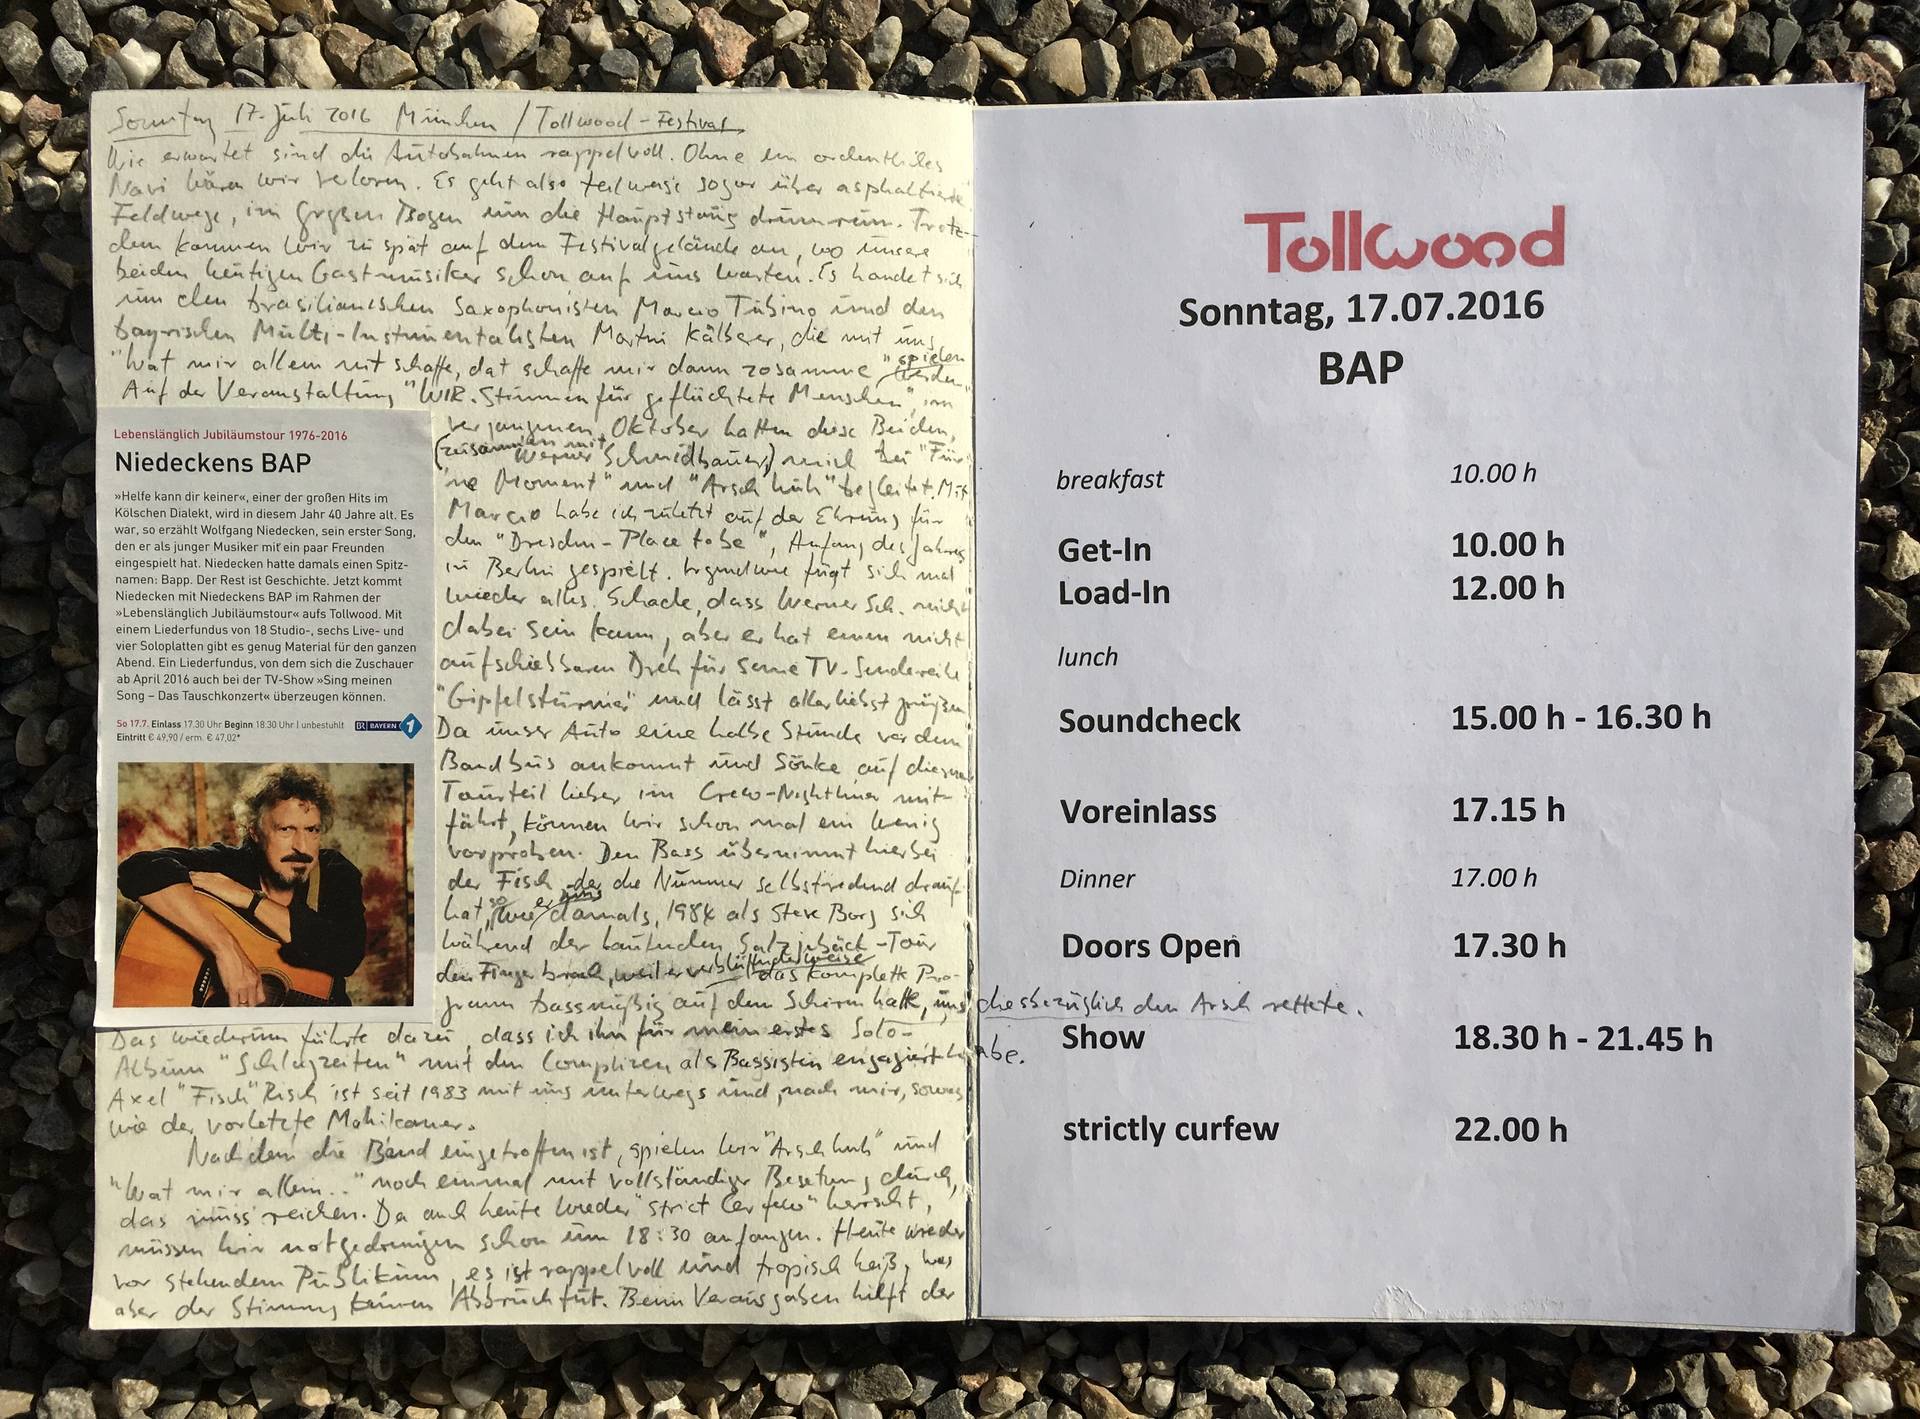 Sonntag 17. Juli 2016 München / Tollwood-Festival
Wie erwartet sind die Autobahnen rappelvoll. Ohne ein ordentliches
Navi wären wir verloren. Es geht also teilweise sogar über asphaltierte
Feldwege, im großen Bogen um die Hauptstaus drumrum. Trotz-
dem kommen wir zu spät auf dem Festivalgelände an, wo unsere
beiden heutigen Gastmusiker schon auf uns warten. Es handelt sich
um den brasilianischen Saxophonisten Marcio Tubino und den
bayrischen Multi-Instrumentalisten Martin Kälberer, die mit uns
"Wat mir allein nit schaffe, dat schaffe mir dann zosamme" spielen werden.
Auf der Veranstaltung "WIR. Stimmen für geflüchtete Menschen", im
Lebenslänglich Jubiläumstour 1976-2016
Niedeckens BAP
»Helfe kann dir keiner«, einer der großen Hits im
Kölschen Dialekt, wird in diesem Jahr 40 Jahre alt. Es
war, so erzählt Wolfgang Niedecken, sein erster Song,
den er als junger Musiker mit ein paar Freunden
eingespielt hat. Niedecken hatte damals einen Spitz-
namen: Bapp. Der Rest ist Geschichte. Jetzt kommt
Niedecken mit Niedeckens BAP im Rahmen der
»Lebenslänglich Jubiläumstour« aufs Tollwood. Mit
einem Liederfundus von 18 Studio-, sechs Live- und
vier Soloplatten gibt es genug Material für den ganzen
Abend. Ein Liederfundus, von dem sich die Zuschauer
ab April 2016 auch bei der TV-Show »Sing meinen
Song – Das Tauschkonzert« überzeugen können.
So 17.7. Einlass 17.30 Uhr Beginn 18.30 Uhr | unbestuhlt
BR BAYERN 1
Eintritt € 49,90 / erm. € 47,02*
vergangenen Oktober hatten diese Beiden,
(zusammen mit Werner Schmidbauer) mich bei "Für
'ne Moment" und "Arsch huh" begleitet. Mit
Marcio habe ich zuletzt auf der Ehrung für
den "Dresden-Place to be", Anfang des Jahres
in Berlin gespielt. Irgendwie fügt sich mal
wieder alles. Schade, dass Werner Sch. nicht
dabei sein kann, aber er hat einen nicht
aufschiebbaren Dreh für seine TV-Sendereihe
"Gipfelstürmer" und lässt allerliebst grüßen
Da unser Auto eine halbe Stunde vor dem
Bandbus ankommt und Sönke auf diesem
Tourteil lieber im Crew-Nightliner mit-
fährt, können wir schon mal ein wenig
vorproben. Den Bass übernimmt hierbei
der Fisch, der die Nummer selbstredend drauf
hat, so wie er uns damals, 1984 als Steve Borg sich
während der laufenden Salzjebäck-Tour
den Finger brach, weil er verblüffenderweise das komplette Pro-
gramm bassmäßig auf dem Schirm hatte, uns diesbezüglich den Arsch rettete.
Das wiederum führte dazu, dass ich ihn für mein erstes Solo-
Album "Schlagzeiten" mit den Complizen als Bassisten engagiert habe.
Axel "Fisch" Risch ist seit 1983 mit uns unterwegs und, nach mir, sowas
wie der vorletzte Mohikaner.
Nachdem die Band eingetroffen ist, spielen wir "Arsch huh" und
"Wat mir allein.." noch einmal mit vollständiger Besetzung durch,
das muss reichen. Da auch heute wieder "strict Curfew" herrscht,
müssen wir notgedrungen schon um 18:30 anfangen. Heute wieder
vor stehendem Publikum, es ist rappelvoll und tropisch heiß, was
aber der Stimmung keinen Abbruch tut. Beim Verausgaben hilft der
Tollwood
Sonntag, 17.07.2016
BAP
breakfast 10.00 h
Get-In 10.00 h
Load-In 12.00 h
lunch
Soundcheck 15.00 h - 16.30 h
Voreinlass 17.15 h
Dinner 17.00 h
Doors Open 17.30 h
Show 18.30 h - 21.45 h
strictly curfew 22.00 h